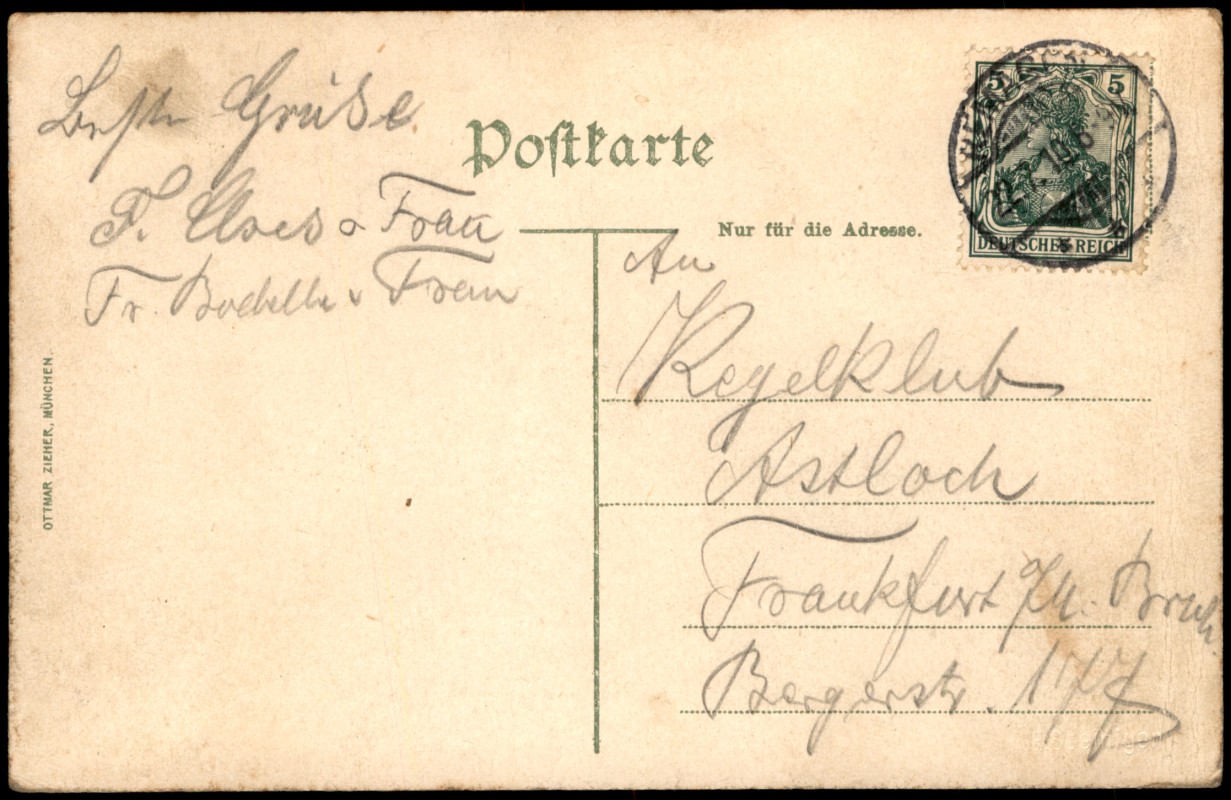 Beste Grüße
Postkarte
F. & Frau
Fr. & Frau
Nur für die Adresse.
5 5
DEUTSCHES REICH
An
Kegelklub
Astloch
Frankfurt a/M.
Bergerstr. 177
OTTMAR ZIEHER, MÜNCHEN.